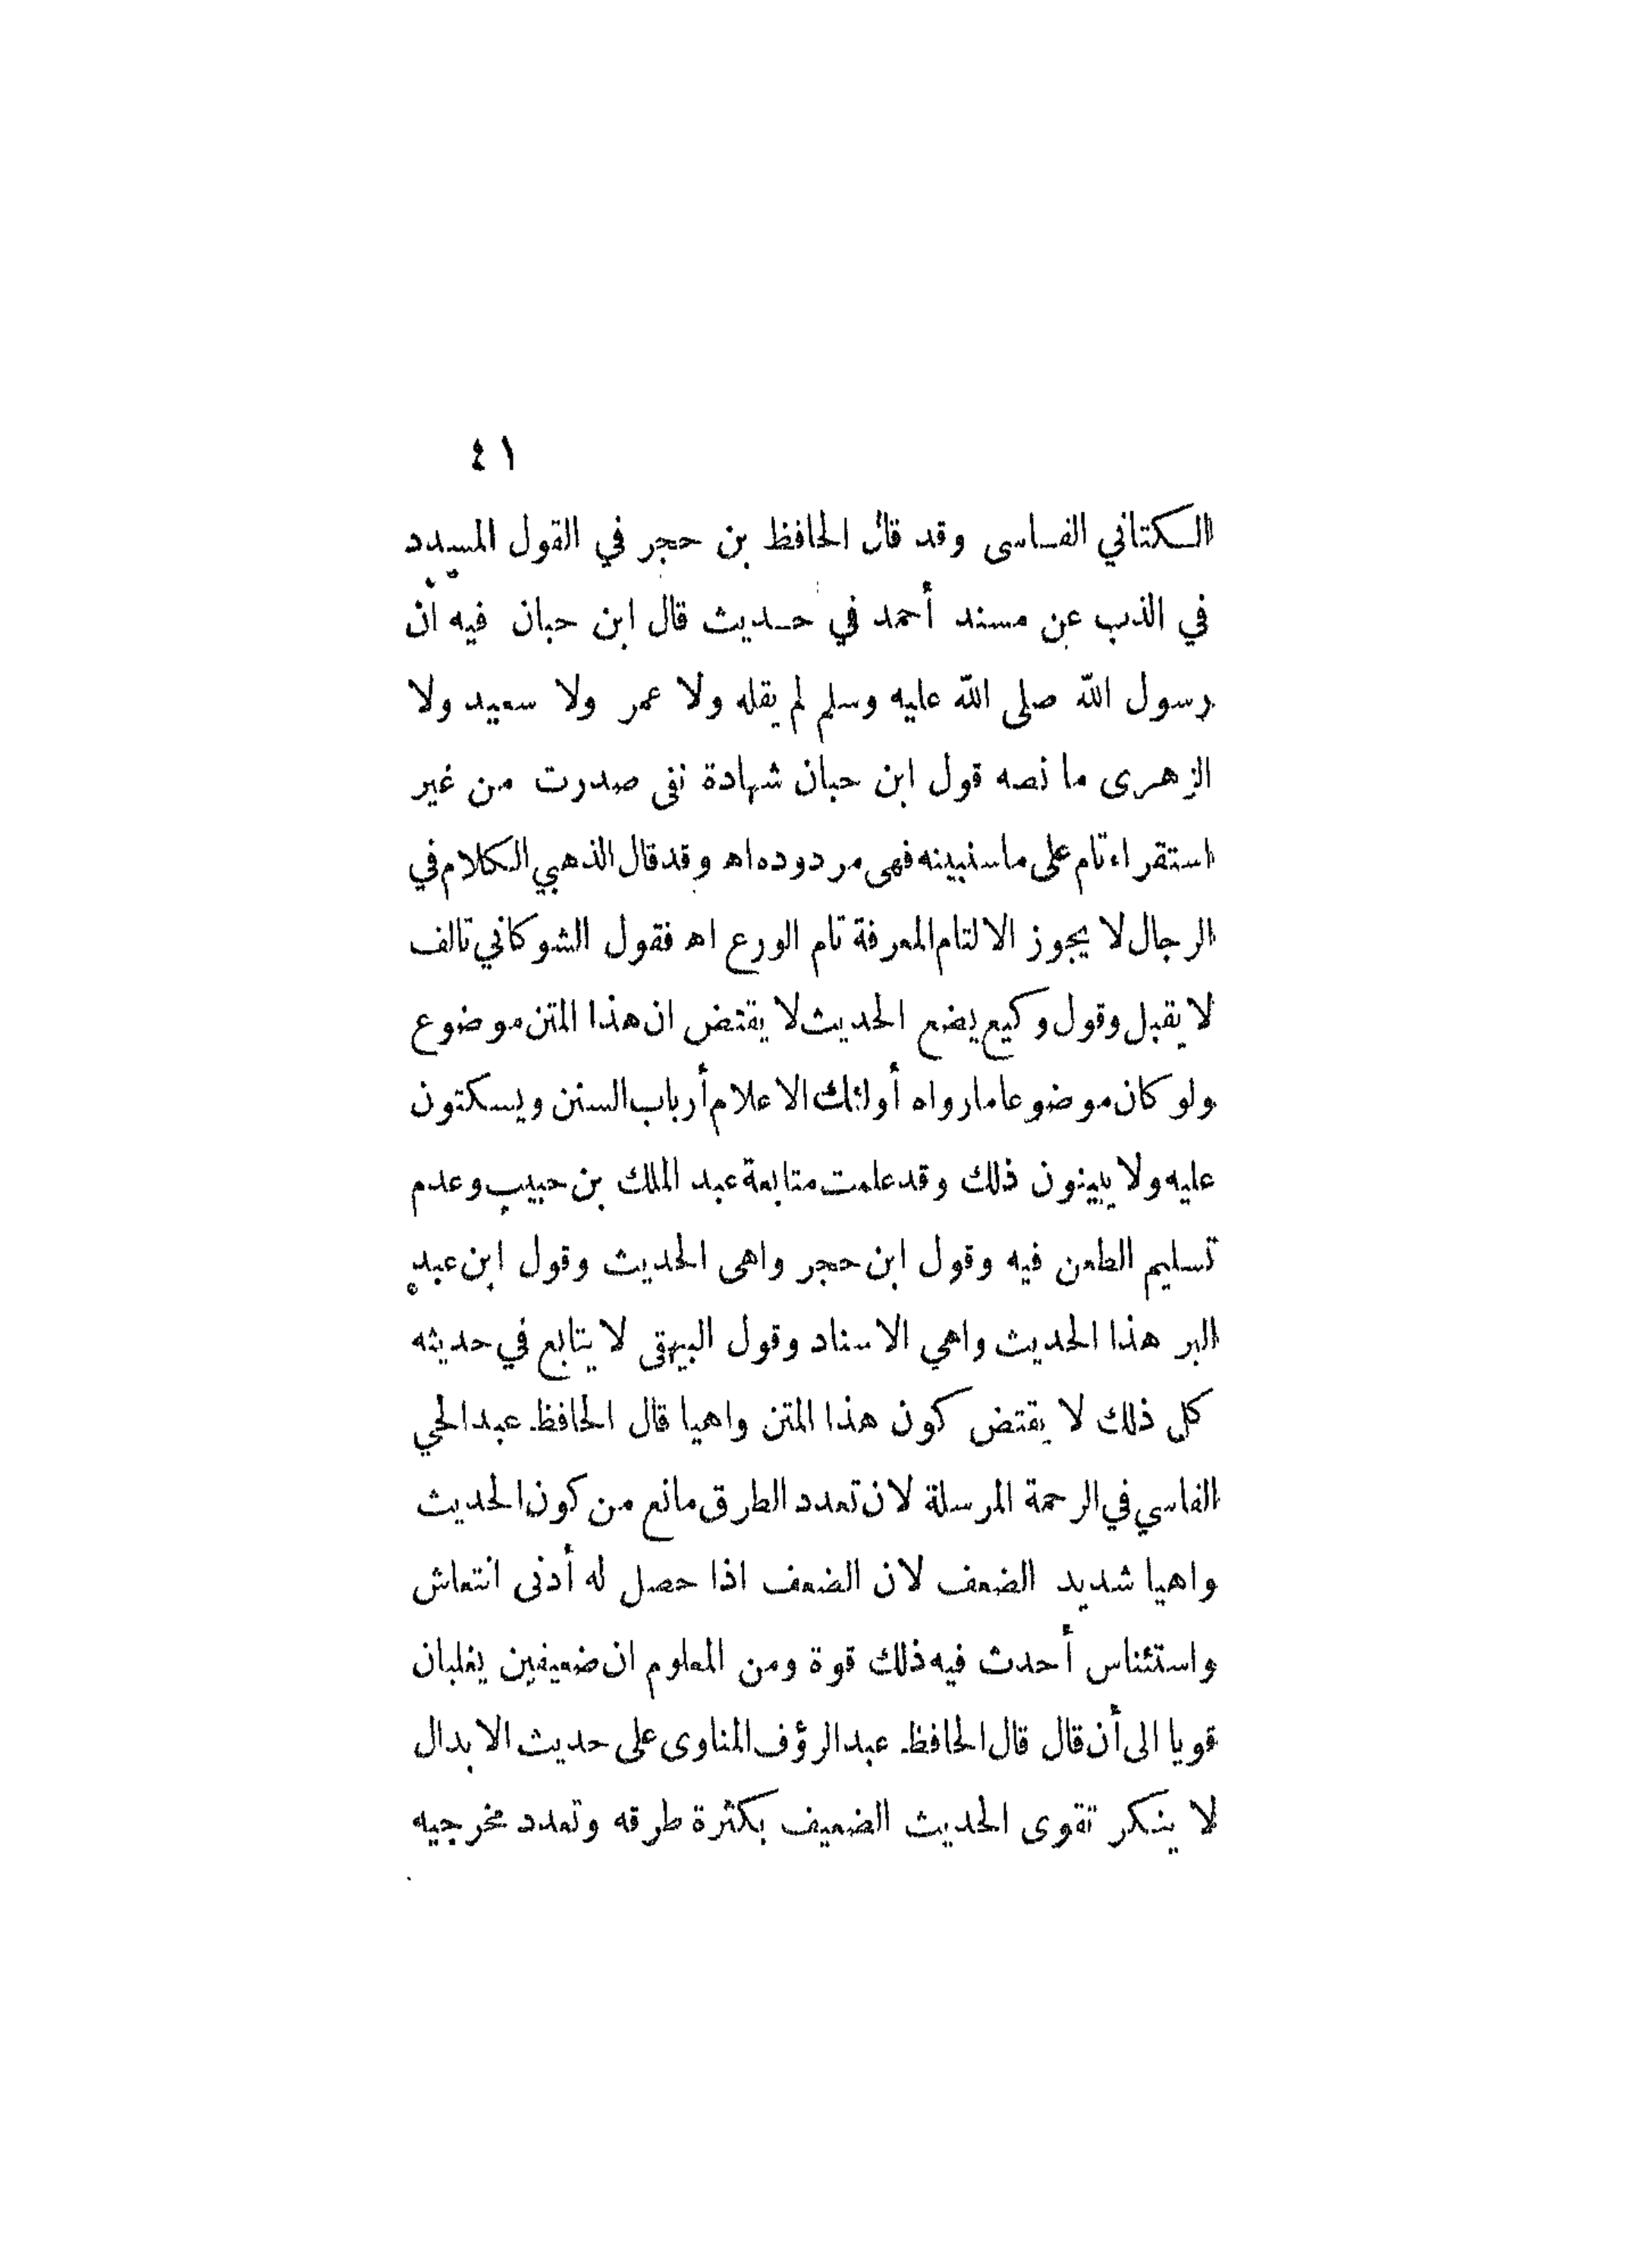 ٤١
الكتاني الفاسى وقد قال الحافظ بن حجر في القول المسدد
في الذب عن مسند أحمد في حديث قال ابن حبان فيه ان
رسول الله صلى الله عليه وسلم لم يقله ولا عمر ولا سعيد ولا
الزهرى ما نصه قول ابن حبان شهادة نفى صدرت من غير
استقراء تام على ما سنبينه فهى مردوده اه وقد قال الذهبي الكلام في
الرجال لا يجوز الا لتام المعرفة تام الورع اه فقول الشوكاني تالف
لا يقبل وقول وكيع يضع الحديث لا يقتض ان هذا المتن موضوع
ولو كان موضوعا ما رواه أولئك الاعلام أرباب السنن ويسكتون
عليه ولا يبينون ذلك وقد علمت متابعة عبد الملك بن حبيب وعدم
تسليم الطعن فيه وقول ابن حجر واهى الحديث وقول ابن عبد
البر هذا الحديث واهي الاسناد وقول البيهقى لا يتابع في حديثه
كل ذلك لا يقتض كون هذا المتن واهيا قال الحافظ عبد الحي
الفاسي في الرحمة المرسلة لان تعدد الطرق مانع من كون الحديث
واهيا شديد الضعف لان الضعف اذا حصل له أدنى انتعاش
واستئناس أحدث فيه ذلك قوة ومن المعلوم ان ضعيفين يغلبان
قويا الى أن قال قال الحافظ عبد الرؤف المناوى على حديث الابدال
لا ينكر تقوى الحديث الضعيف بكثرة طرقه وتعدد مخرجيه